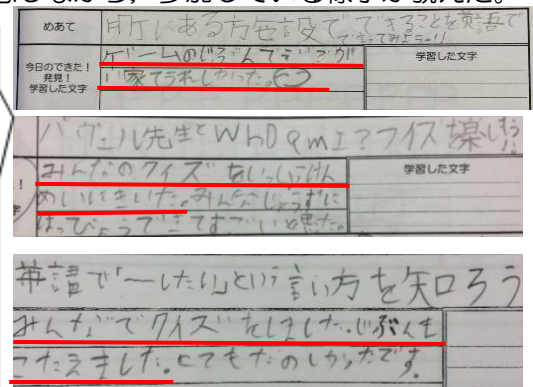 めあて
町にある方包設でできることを英語で
言ってみよう。
今日のできた!
発見!
学習した文字
ゲームのじぶんで
家てうれしかった。
学習した文字
先生とWho am I?クイズを楽しもう!
みんなのクイズをいっしょうけん
めいにきいた。みんなじょうずに
はっぴょうできてすごいと思った。
学習した文字
英語で「〜したい」という言い方を知ろう
みんなでクイズをしました。じぶんも
こたえました。とてもたのしかったです。